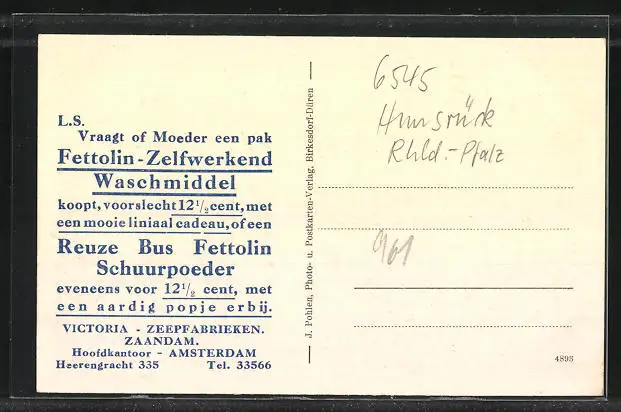 L.S.
Vraagt of Moeder een pak
Fettolin-Zelfwerkend
Waschmiddel
koopt, voorslecht 12 1/2 cent, met
een mooie liniaal cadeau, of een
Reuze Bus Fettolin
Schuurpoeder
eveneens voor 12 1/2 cent, met
een aardig popje erbij.
VICTORIA - ZEEPFABRIEKEN.
ZAANDAM.
Hoofdkantoor - AMSTERDAM
Heerengracht 335 Tel. 33566
J. Pohlen, Photo- u. Postkarten-Verlag, Birkesdorf-Düren
6545
Hunsrück
Rhld.-Pfalz
4893